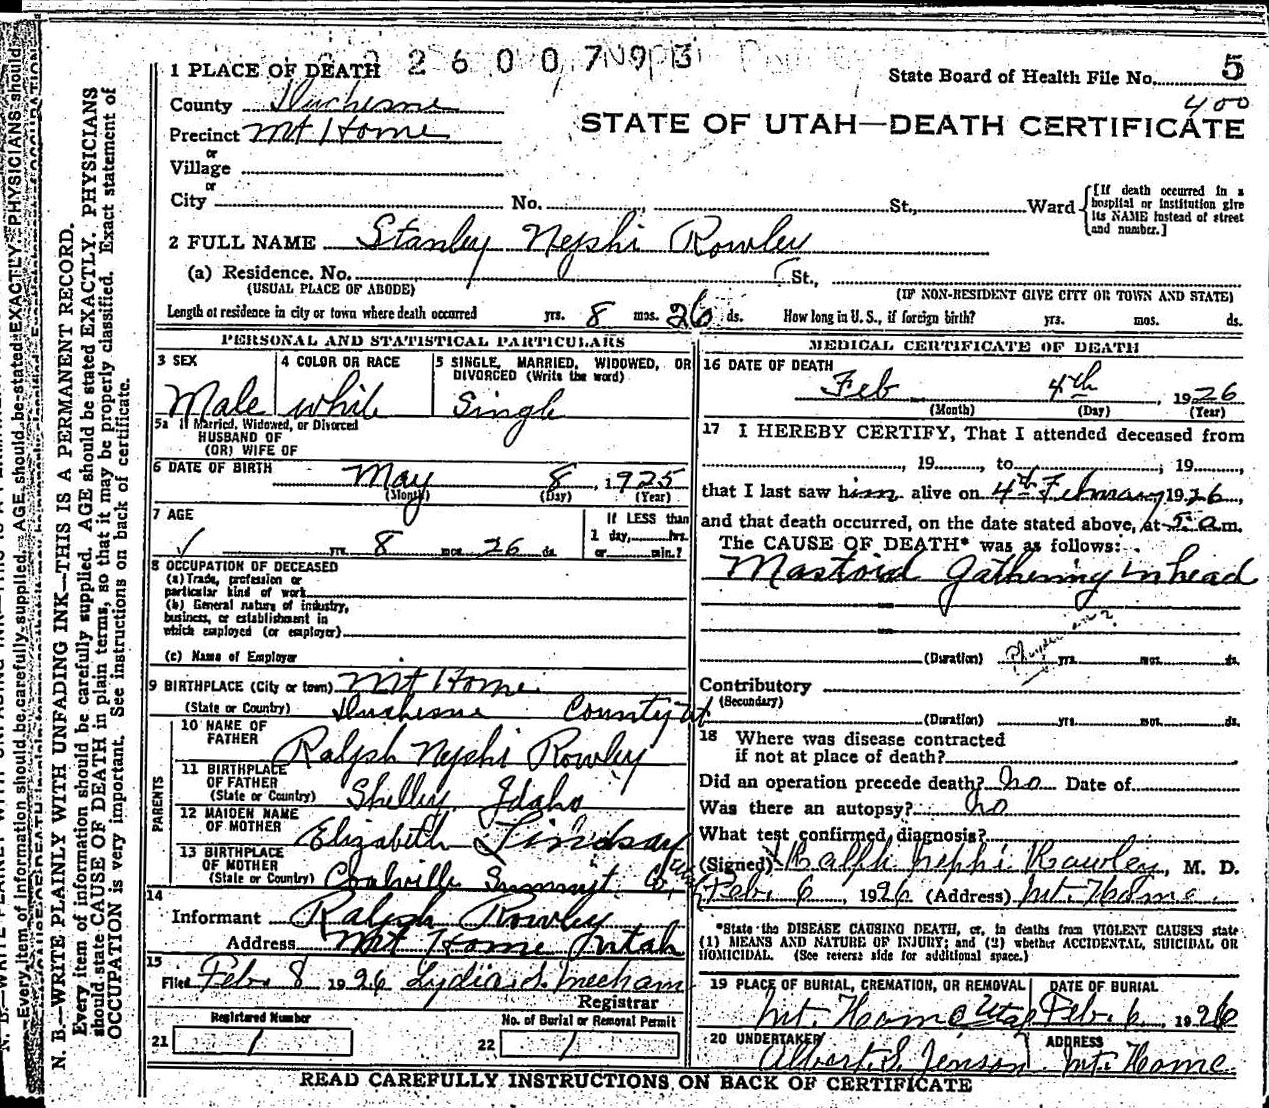 2 6 0 0 7 9 3
1 PLACE OF DEATH
State Board of Health File No. 5
400
County Duchesne
STATE OF UTAH—DEATH CERTIFICATE
Precinct Mt Home
or
Village
or
City No. St., Ward
[If death occurred in a hospital or institution give its NAME instead of street and number.]
2 FULL NAME Stanley Nephi Rowley
(a) Residence. No. St.,
(USUAL PLACE OF ABODE)
(IF NON-RESIDENT GIVE CITY OR TOWN AND STATE)
Length of residence in city or town where death occurred yrs. 8 mos. 26 ds. How long in U. S., if foreign birth? yrs. mos. ds.
PERSONAL AND STATISTICAL PARTICULARS
3 SEX
Male
4 COLOR OR RACE
while
5 SINGLE, MARRIED, WIDOWED, OR DIVORCED (Write the word)
Single
5a If Married, Widowed, or Divorced
HUSBAND OF
(OR) WIFE OF
6 DATE OF BIRTH
May 8, 1925
(Month) (Day) (Year)
7 AGE
yrs. 8 mos. 26 ds.
If LESS than
1 day,......hrs.
or......min.?
8 OCCUPATION OF DECEASED
(a) Trade, profession or
particular kind of work
(b) General nature of industry,
business, or establishment in
which employed (or employer)
(c) Name of Employer
9 BIRTHPLACE (City or town) Mt Home
(State or Country) Duchesne County ut
PARENTS
10 NAME OF
FATHER
Ralph Nephi Rowley
11 BIRTHPLACE
OF FATHER
(State or Country) Shelley Idaho
12 MAIDEN NAME
OF MOTHER Elizabeth Lindsay
13 BIRTHPLACE
OF MOTHER
(State or Country) Coalville Summit Co, Utah
14
Informant Ralph Rowley
Address Mt Home Utah
15
Filed Feb. 8 1926 Lydia S. Mecham
Registrar
Registered Number
21 1
No. of Burial or Removal Permit
22 1
MEDICAL CERTIFICATE OF DEATH
16 DATE OF DEATH
Feb 4th, 1926
(Month) (Day) (Year)
17 I HEREBY CERTIFY, That I attended deceased from
, 19......, to ; 19......,
that I last saw him alive on 4th February 1926,
and that death occurred, on the date stated above, at 5 a m.
The CAUSE OF DEATH* was as follows:
Mastoid gathering in head
(Duration) yrs. mos. ds.
Contributory
(Secondary)
(Duration) yrs. mos. ds.
18 Where was disease contracted
if not at place of death?
Did an operation precede death? no Date of
Was there an autopsy? no
What test confirmed diagnosis?
(Signed) Ralph Nephi Rowley, M. D.
Feb. 6, 1926 (Address) Mt. Home
*State the DISEASE CAUSING DEATH, or, in deaths from VIOLENT CAUSES state
(1) MEANS AND NATURE OF INJURY; and (2) whether ACCIDENTAL, SUICIDAL OR
HOMICIDAL. (See reverse side for additional space.)
19 PLACE OF BURIAL, CREMATION, OR REMOVAL
Mt. Home Utah
DATE OF BURIAL
Feb. 6, 1926
20 UNDERTAKER
Albert S. Jenson
ADDRESS
Mt. Home
READ CAREFULLY INSTRUCTIONS ON BACK OF CERTIFICATE
N. B.—WRITE PLAINLY WITH UNFADING INK—THIS IS A PERMANENT RECORD.
Every item of information should be carefully supplied. AGE should be stated EXACTLY. PHYSICIANS
should state CAUSE OF DEATH in plain terms, so that it may be properly classified. Exact statement of
OCCUPATION is very important. See instructions on back of certificate.